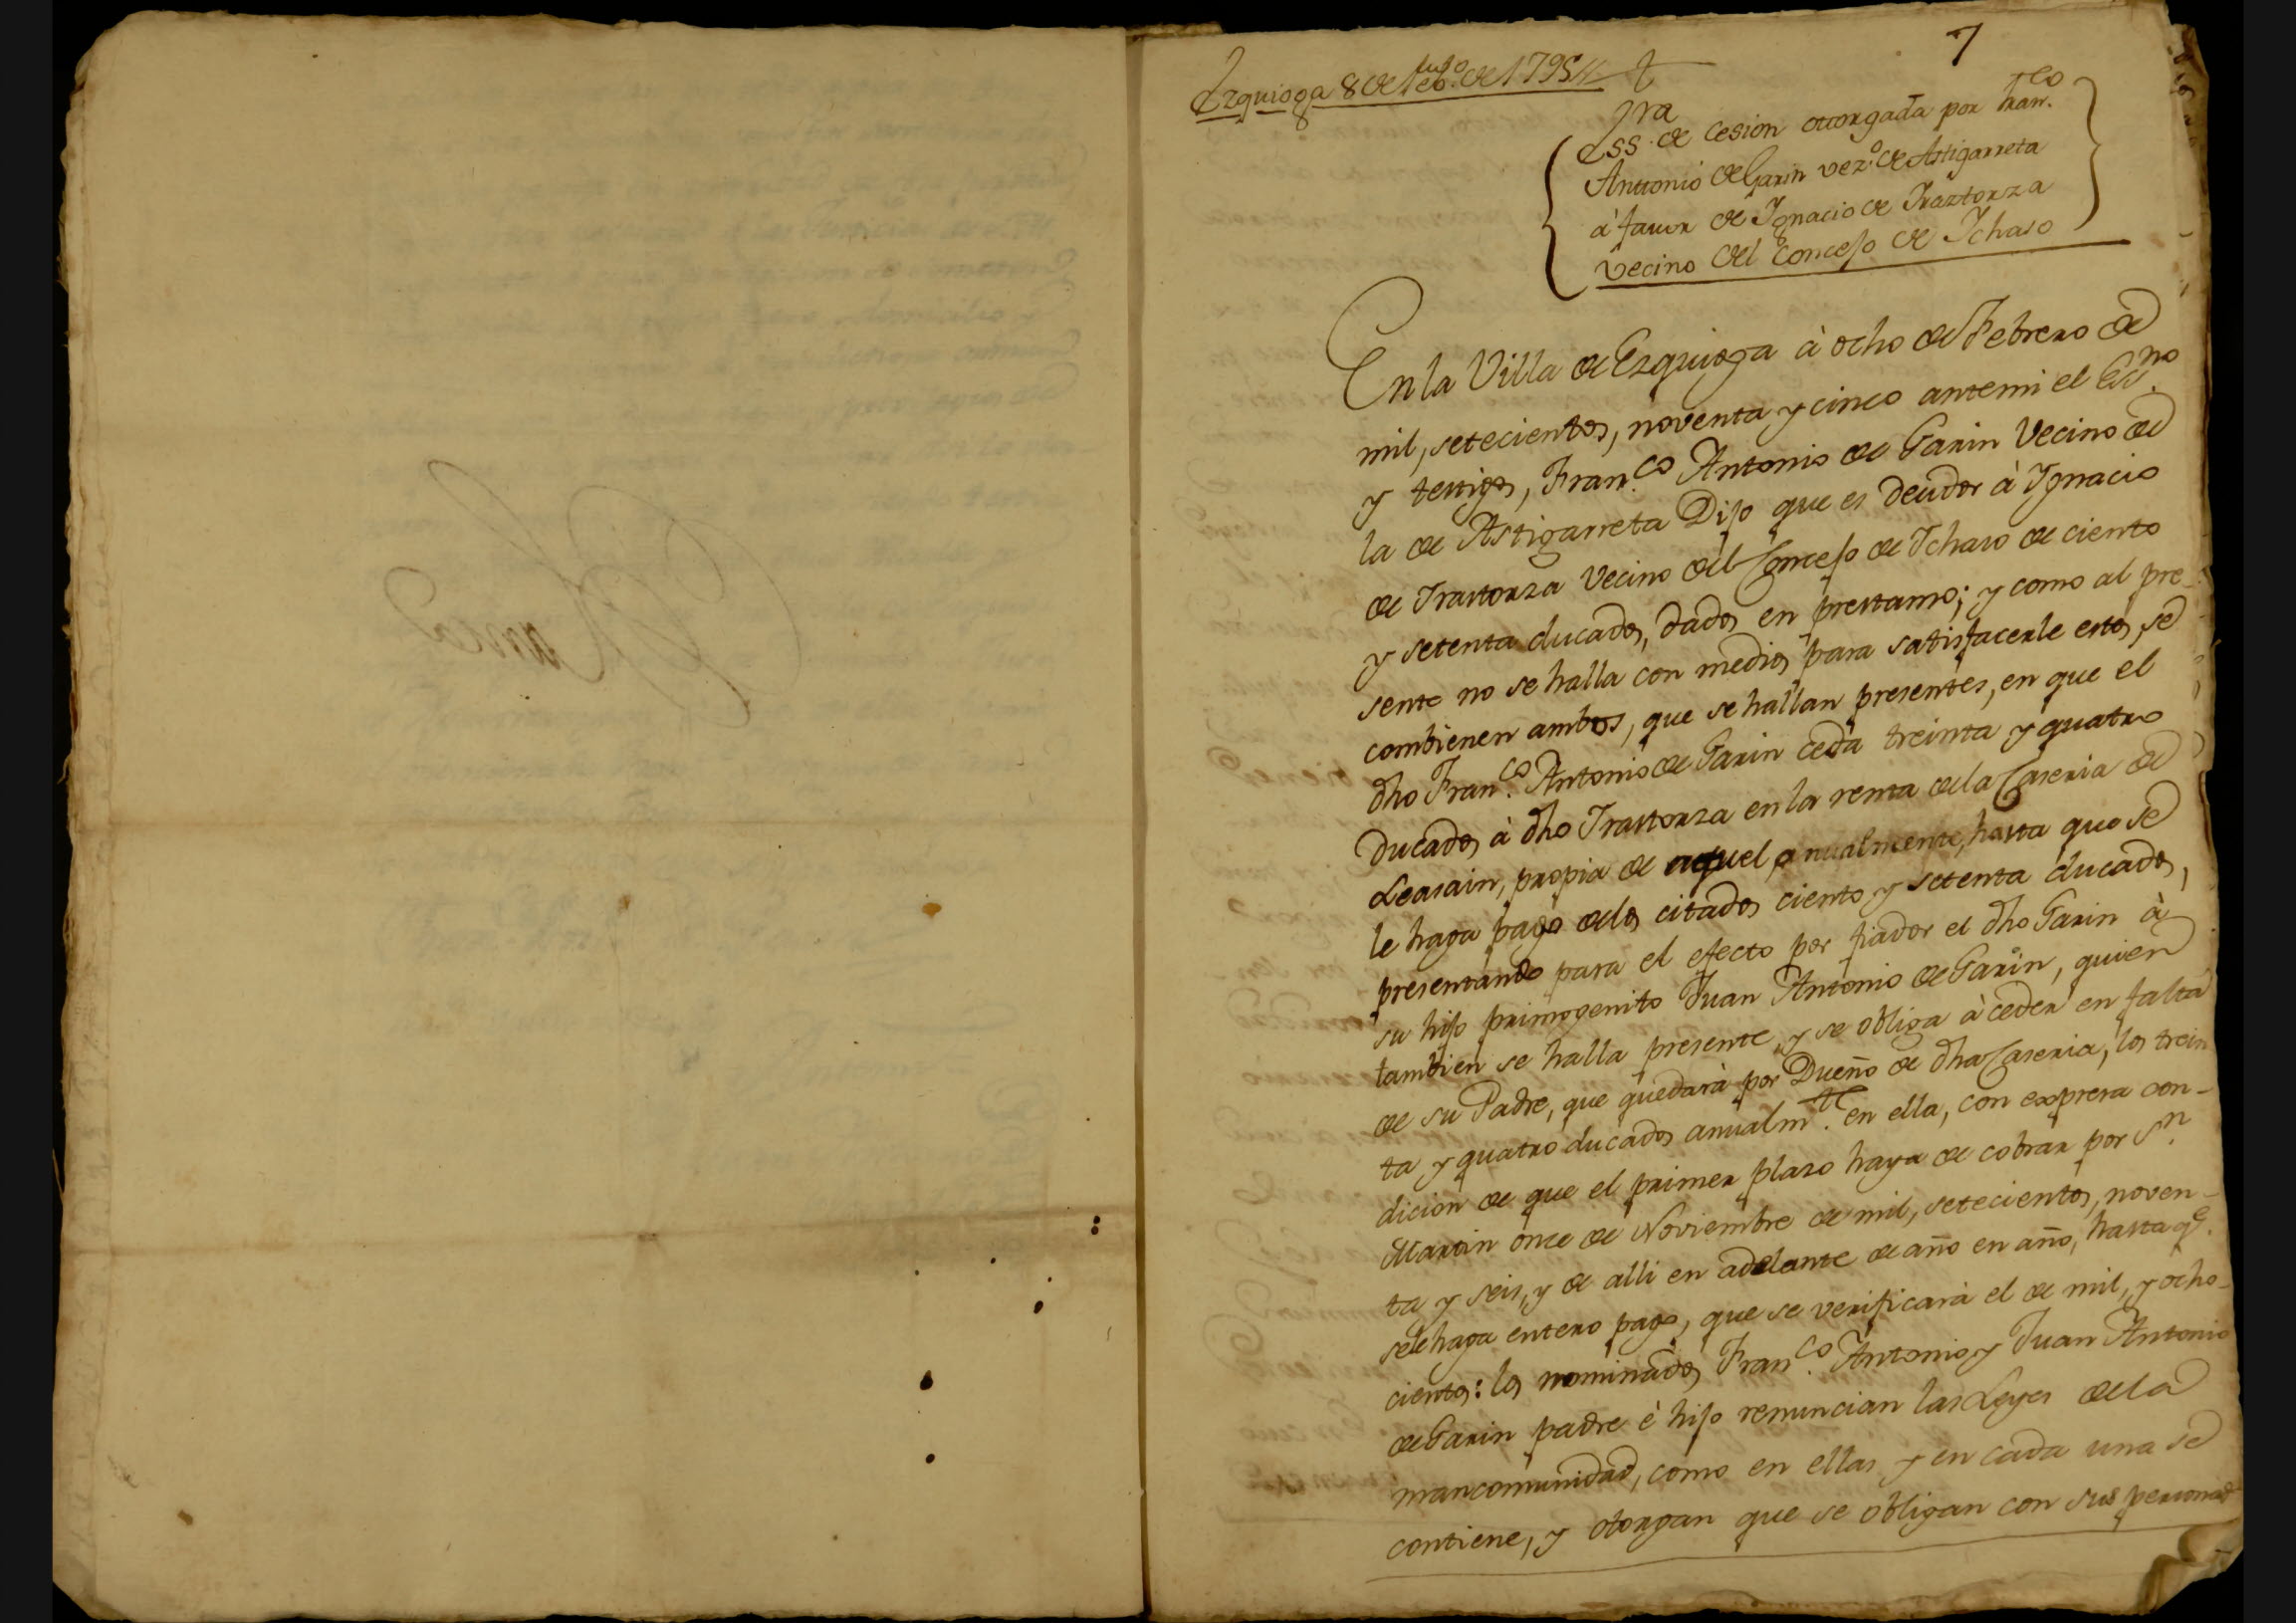 7
Ezquioga 8 de feb.º de 1795
Ess.ra de cesion otorgada por Fran.co
Antonio de Garin vez.º de Astigarreta
à favor de Ignacio de Iraztorza
vecino del Concejo de Ichaso
En la Villa de Ezquioga à ocho de Febrero de
mil, setecientos, noventa y cinco antemi el Ess.no
y testigos, Fran.co Antonio de Garin Vecino de
la de Astigarreta Dijo que es deudor à Ignacio
de Irastorza Vecino del Concejo de Ichaso de ciento
y setenta ducados, dados en prestamo; y como al pre-
sente no se halla con medios para satisfacerle estos, se
combienen ambos, que se hallan presentes, en que el
dho Fran.co Antonio de Garin ceda treinta y quatro
Ducados à dho Irastorza en la renta de la Caseria de
Leasain, propia de aquel anualmente, hasta que se
le haga pago de los citados ciento y setenta ducados,
presentando para el efecto por fiador el dho Garin à
su hijo primogenito Juan Antonio de Garin, quien
tambien se halla presente, y se obliga à ceder en falta
de su Padre, que quedarà por Dueño de dha Caseria, los trein
ta y quatro ducados anualm.te en ella, con expresa con-
dicion de que el primer plazo haya de cobrar por Sn.
Martin once de Noviembre de mil, setecientos, noven-
ta y seis, y de alli en adelante de año en año, hasta q.e
sele haga entero pago, que se verificarà el de mil, y ocho-
cientos: los nominados Fran.co Antonio y Juan Antonio
de Garin padre è hijo renuncian las Leyes de la
mancomunidad, como en ellas y en cada una se
contiene, y otorgan que se obligan con sus personas